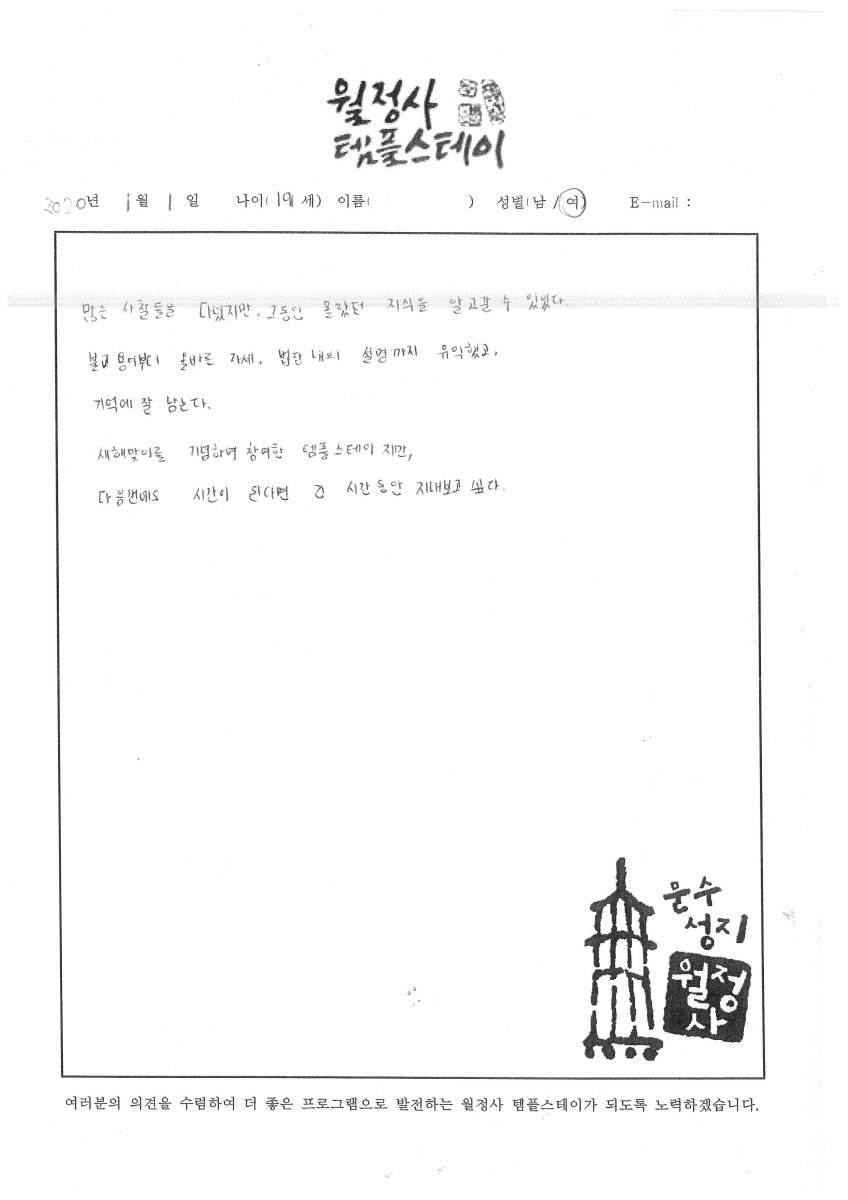 월정사
템플스테이
2020년 1월 1일 나이(19세) 이름( ) 성별(남/여) E-mail :
많은 사찰들을 다녔지만, 그동안 몰랐던 지식을 알고갈 수 있었다.
불교 용어부터 올바른 자세, 법당 내의 설명까지 유익했고,
기억에 잘 남는다.
새해맞이를 기념하며 참여한 템플스테이 지만,
다음번에도 시간이 된다면 긴 시간동안 지내보고 싶다.
문수
성지
월정
사
여러분의 의견을 수렴하여 더 좋은 프로그램으로 발전하는 월정사 템플스테이가 되도록 노력하겠습니다.